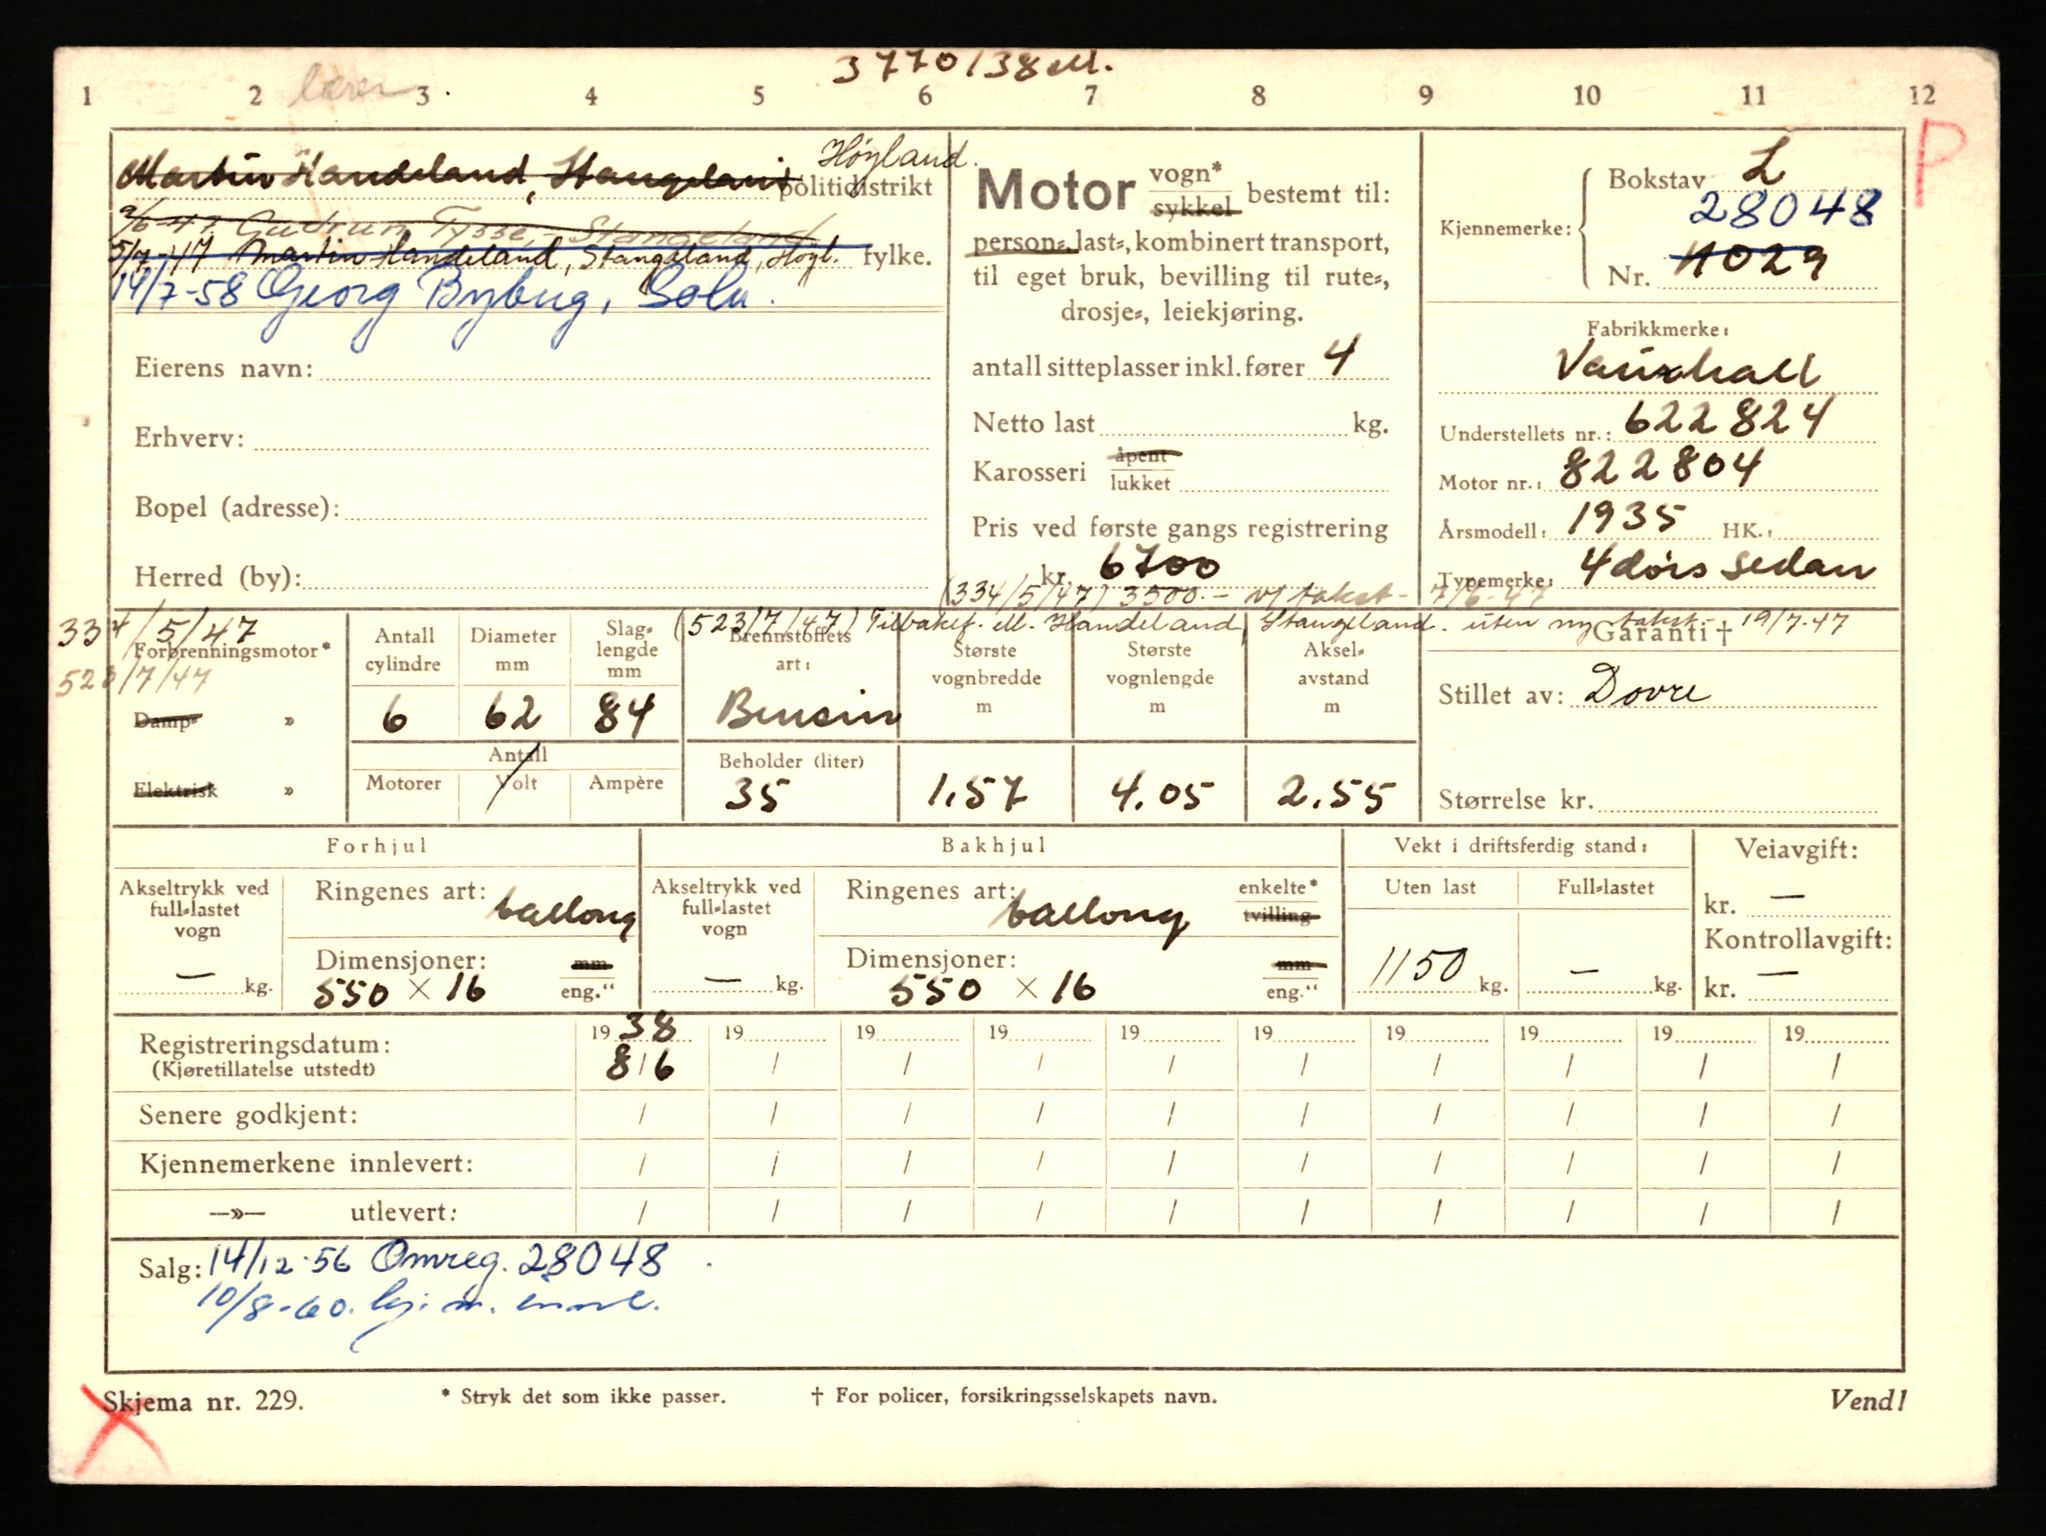 3770/38 M.
1 2 lærer 3 4 5 6 7 8 9 10 11 12
P
Martin Handeland, Stangeland Høyland.
politidistrikt
2/6-47 Gudrun Tysse, - Stangeland
5/7-47 Martin Handeland, Stangeland, Høyl. fylke.
14/7-58 Georg Byberg, Sola.
Eierens navn:
Erhverv:
Bopel (adresse):
Herred (by):
Motor vogn* sykkel bestemt til:
person-, last-, kombinert transport,
til eget bruk, bevilling til rute-,
drosje-, leiekjøring.
antall sitteplasser inkl. fører 4
Netto last kg.
Karosseri åpent lukket
Pris ved første gangs registrering
kr. 6700
(334/5/47) 3500.- v/ takst - 7/6-47
Kjennemerke: Bokstav L
28048
Nr. 11029
Fabrikkmerke:
Vauxhall
Understellets nr.: 622824
Motor nr.: 822804
Årsmodell: 1935 HK.:
Typemerke: 4 dørs sedan
(523/7/47) Tilbakef. M. Handeland, Stangeland. uten ny takst - 19/7-47
334/5/47
Forbrenningsmotor*
523/7/47
Damp- »
Elektrisk »
Antall cylindre
6
Diameter mm
62
Slag-lengde mm
84
Antall
Motorer Volt Ampère
Brennstoffets art:
Bensin
Beholder (liter)
35
Største vognbredde m
1.57
Største vognlengde m
4.05
Aksel-avstand m
2.55
Garanti †
Stillet av: Dovre
Størrelse kr.
Forhjul
Akseltrykk ved full-lastet vogn
— kg.
Ringenes art: ballong
Dimensjoner: mm
550 × 16 eng.“
Bakhjul
Akseltrykk ved full-lastet vogn
— kg.
Ringenes art: ballong enkelte* tvilling
Dimensjoner: mm
550 × 16 eng.“
Vekt i driftsferdig stand:
Uten last Full-lastet
1150 kg. — kg.
Veiavgift:
kr. —
Kontrollavgift:
kr. —
Registreringsdatum: 19 38 19 19 19 19 19 19 19 19 19
(Kjøretillatelse utstedt) 8/6 / / / / / / / / /
Senere godkjent: / / / / / / / / / /
Kjennemerkene innlevert: / / / / / / / / / /
—»— utlevert: / / / / / / / / / /
Salg: 14/12-56 Omreg. 28048
10/8-60. kj. m. innl.
Skjema nr. 229. * Stryk det som ikke passer. † For policer, forsikringsselskapets navn. Vend!